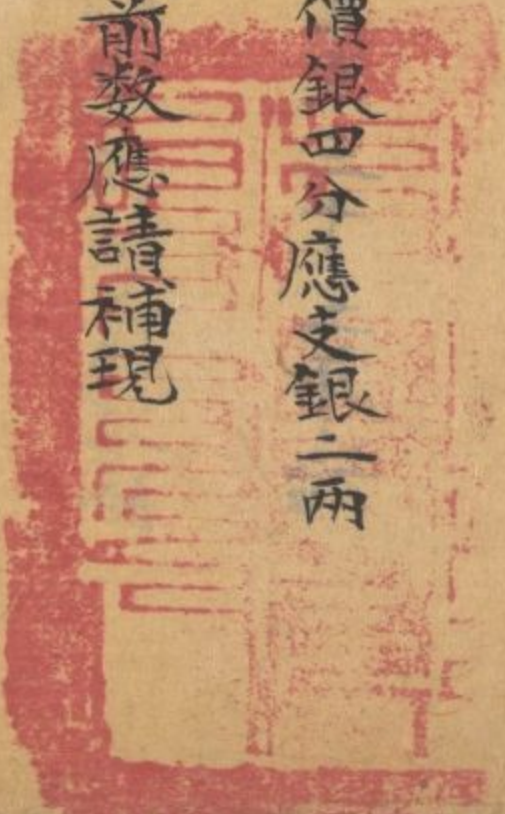 價銀四分應支銀二兩
前数應請補現